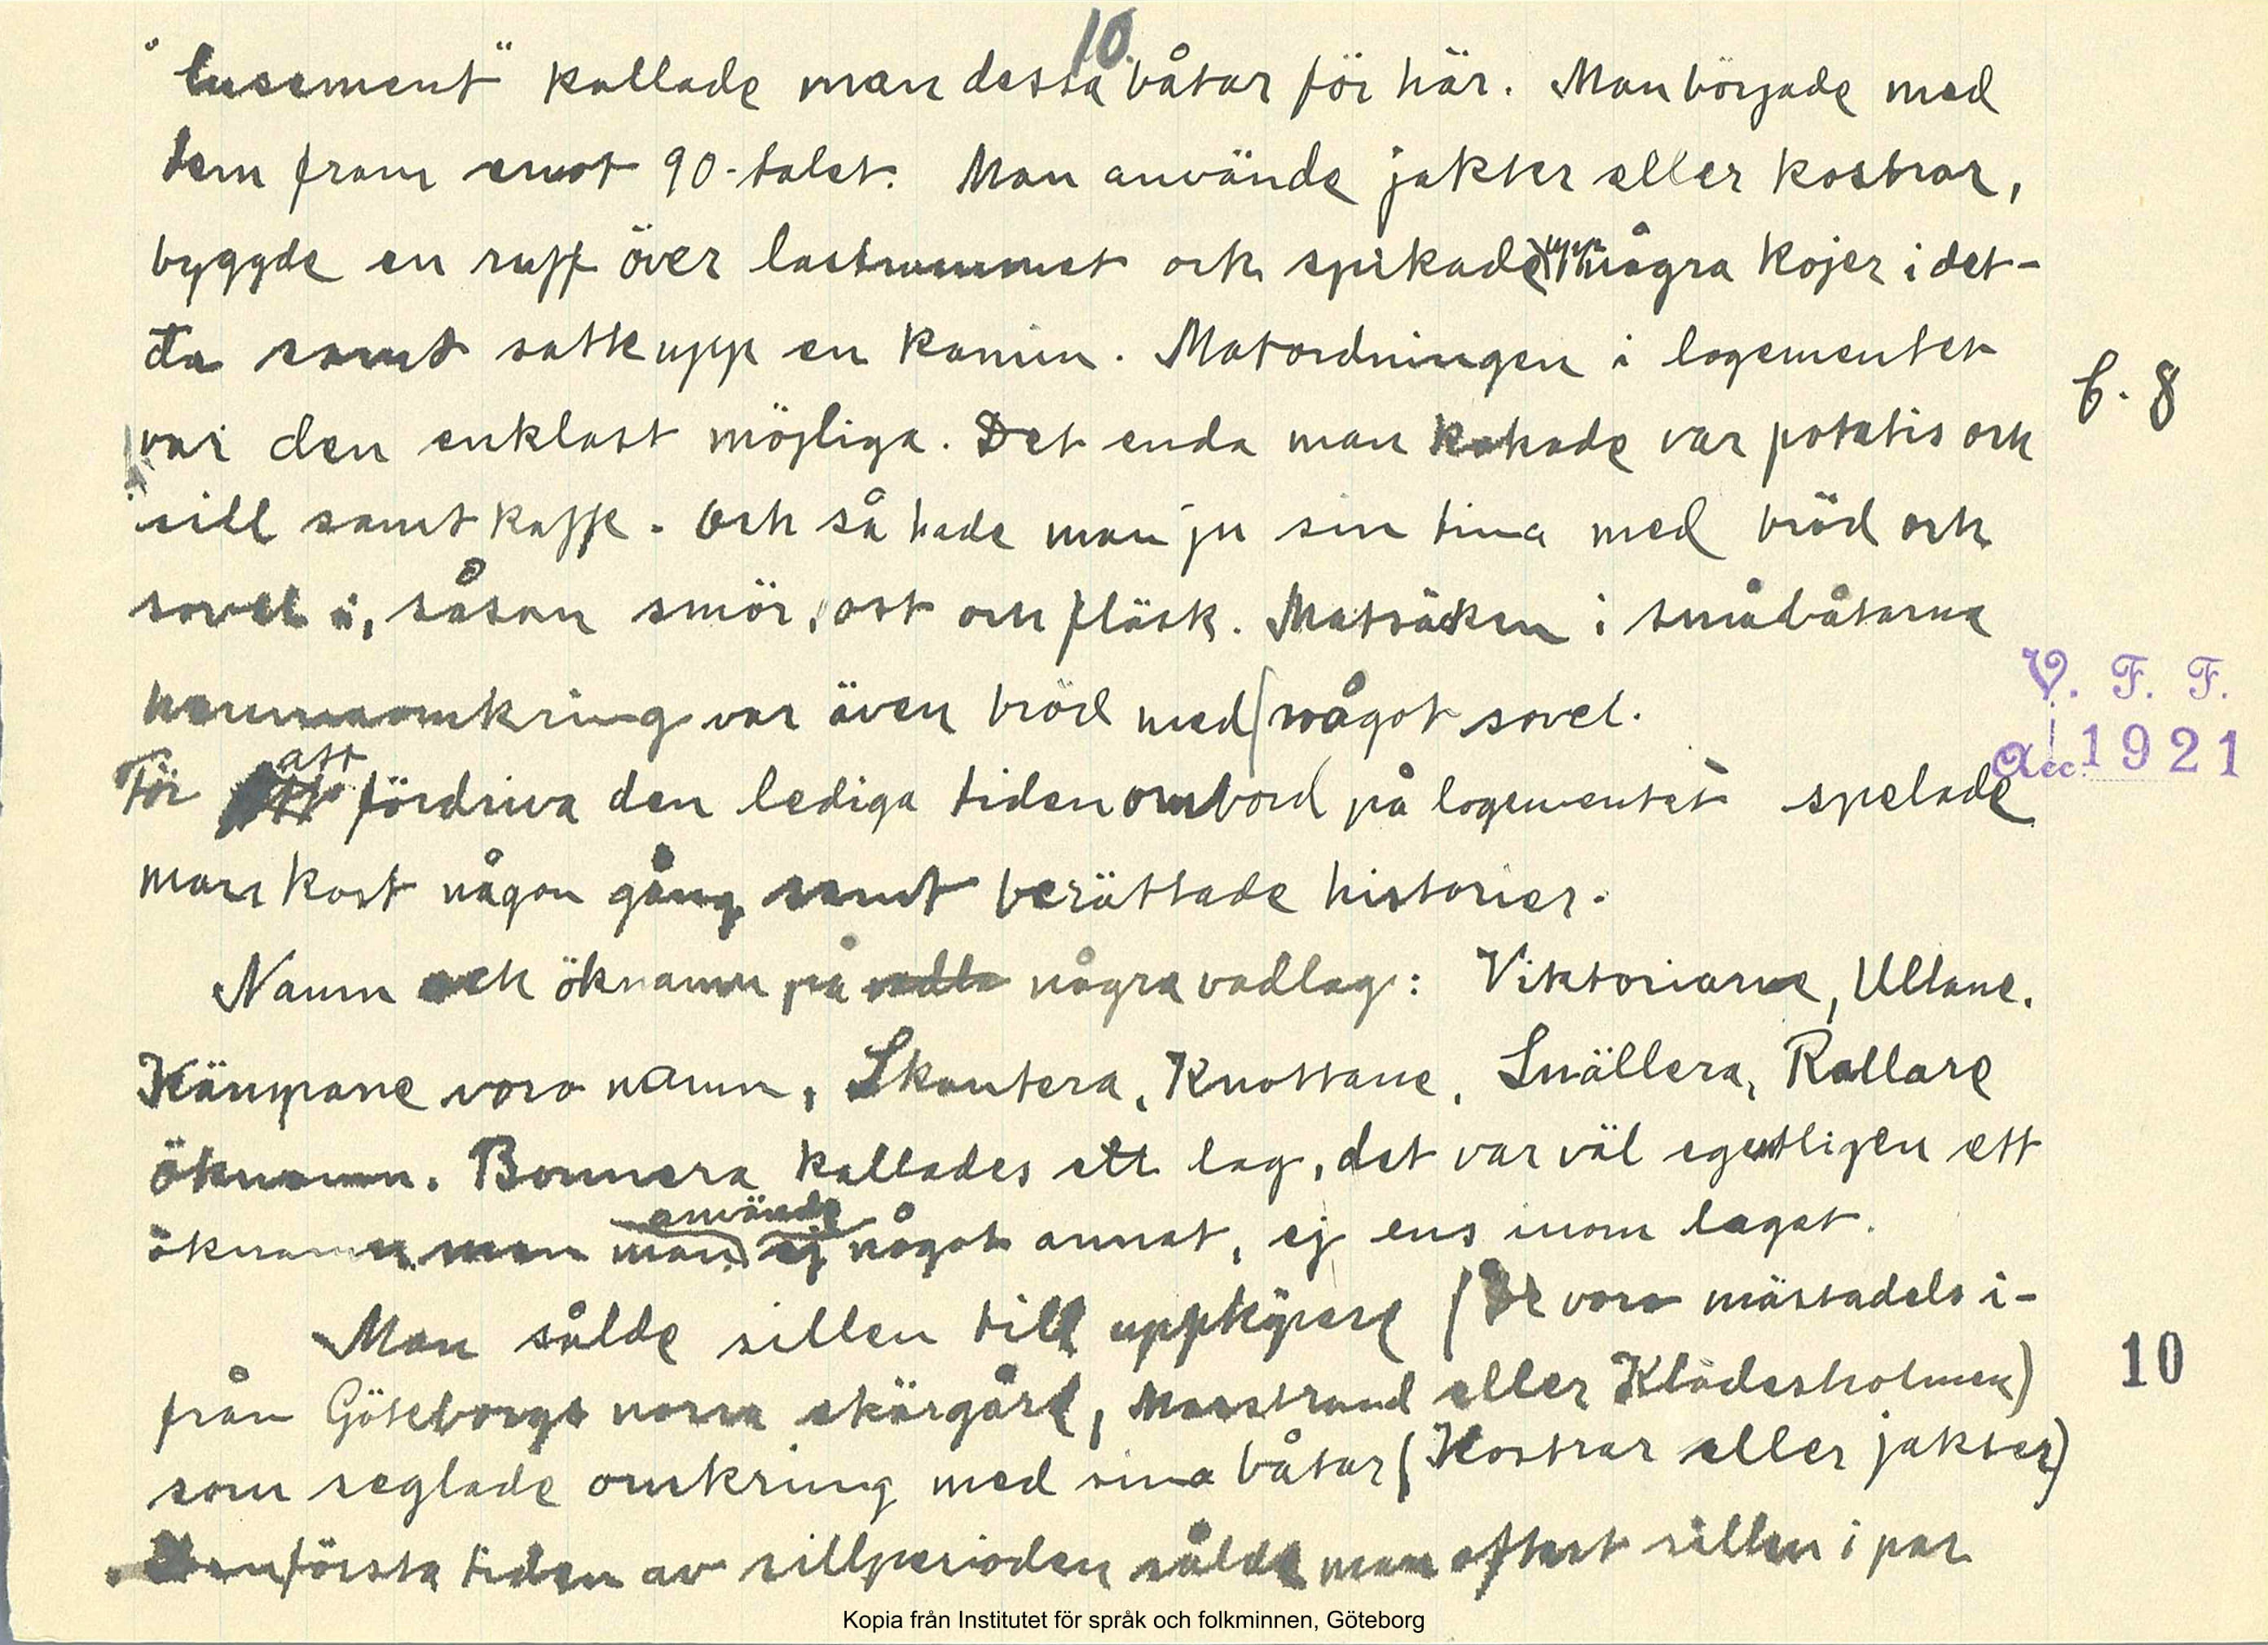 10.
"lusement" kallade man dessa båtar för här. Man började med
dem fram emot 90-talet. Man använde jakter eller kostrar,
byggde en ruff över lastrummet och spikade upp några kojer i det-
ta samt satte upp en kamin. Matordningen i logementet
var den enklast möjliga. Det enda man kokade var potatis och
sill samt kaffe. Och så hade man ju sin tina med bröd och
sovel i, såsom smör, ost och fläsk. Matsäcken i småbåtarna
hemmaomkring var även bröd med något sovel.
För att fördriva den lediga tiden ombord på logementet spelade
man kort någon gång samt berättade historier.
Namn och öknamn på några vadlag: Viktoriarne, Ullane.
Kämpane voro namn, Skontera, Knottane, Snällera, Rallare
öknamn. Bonnera kallades ett lag, det var väl egentligen ett
öknamn men man använde ej något annat, ej ens inom laget.
Man sålde sillen till uppköpare (De voro mästadels i-
från Göteborgs norra skärgård, Marstrand eller Klädesholmen)
som seglade omkring med sina båtar (Kostrar eller jakter)
Den första tiden av sillperioden sålde man oftast sillen i par
f. 8
V. F. F.
Acc. 1921
10
Kopia från Institutet för språk och folkminnen, Göteborg